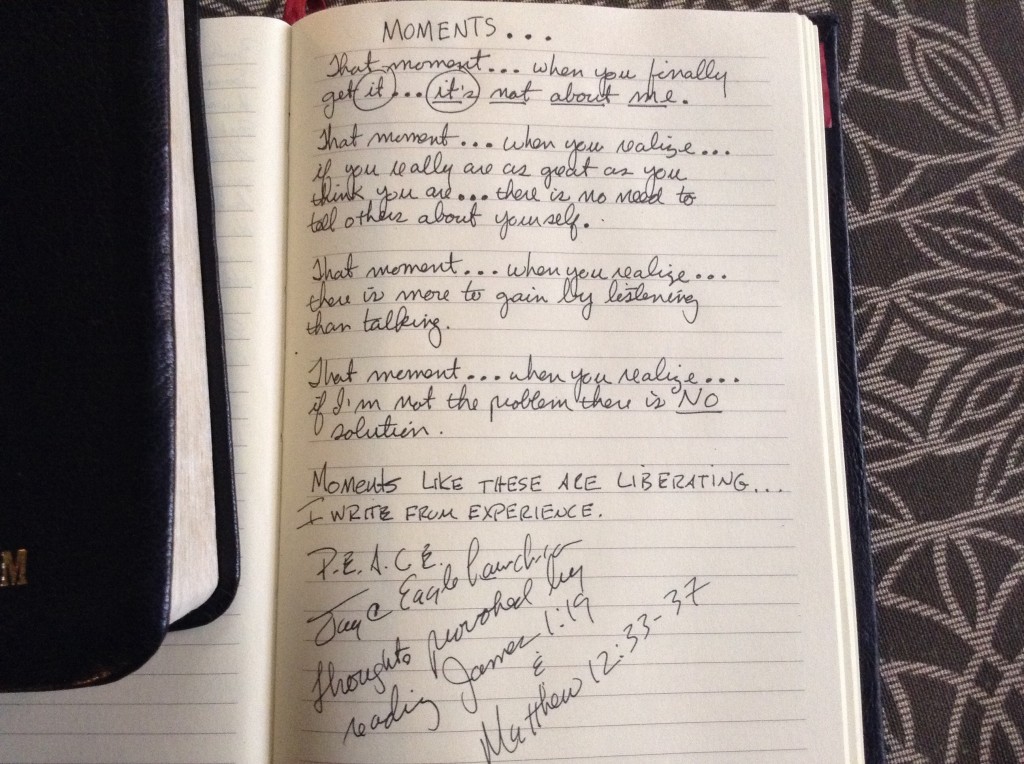 MOMENTS...
That moment... when you finally
get it... it's not about me.
That moment... when you realize...
if you really are as great as you
think you are... there is no need to
tell others about yourself.
That moment... when you realize...
there is more to gain by listening
than talking.
That moment... when you realize...
if I'm not the problem there is NO
solution.
Moments LIKE THESE ARE LIBERATING...
I WRITE FROM EXPERIENCE.
P.E.A.C.E.
Jay @ Eagle Launcher
Thoughts provoked by
reading James 1:19
&
Matthew 12:33-37
M